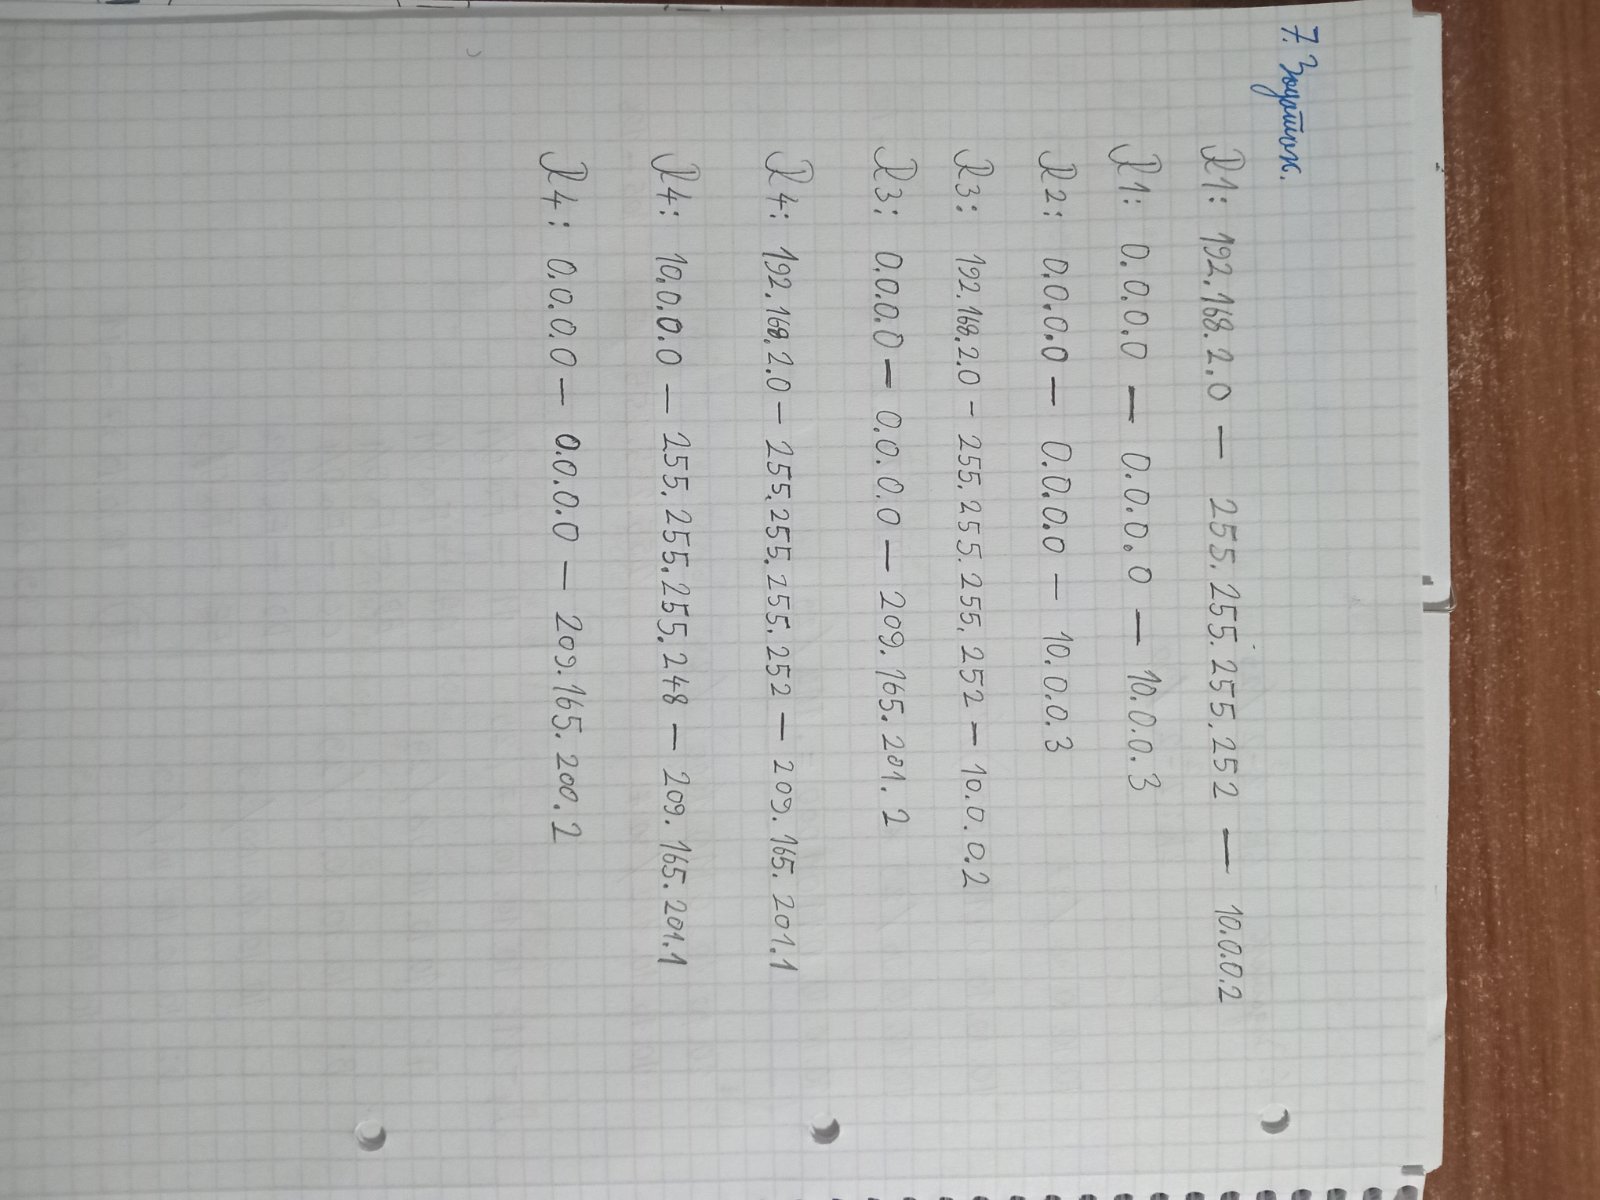 7. Задатак.
R1: 192.168.2.0 — 255.255.255.252 — 10.0.0.2
R1: 0.0.0.0 — 0.0.0.0 — 10.0.0.3
R2: 0.0.0.0 — 0.0.0.0 — 10.0.0.3
R3: 192.168.2.0 - 255.255.255.252 — 10.0.0.2
R3: 0.0.0.0 — 0.0.0.0 — 209.165.201.2
R4: 192.168.2.0 — 255.255.255.252 — 209.165.201.1
R4: 10.0.0.0 — 255.255.255.248 — 209.165.201.1
R4: 0.0.0.0 — 0.0.0.0 — 209.165.200.2